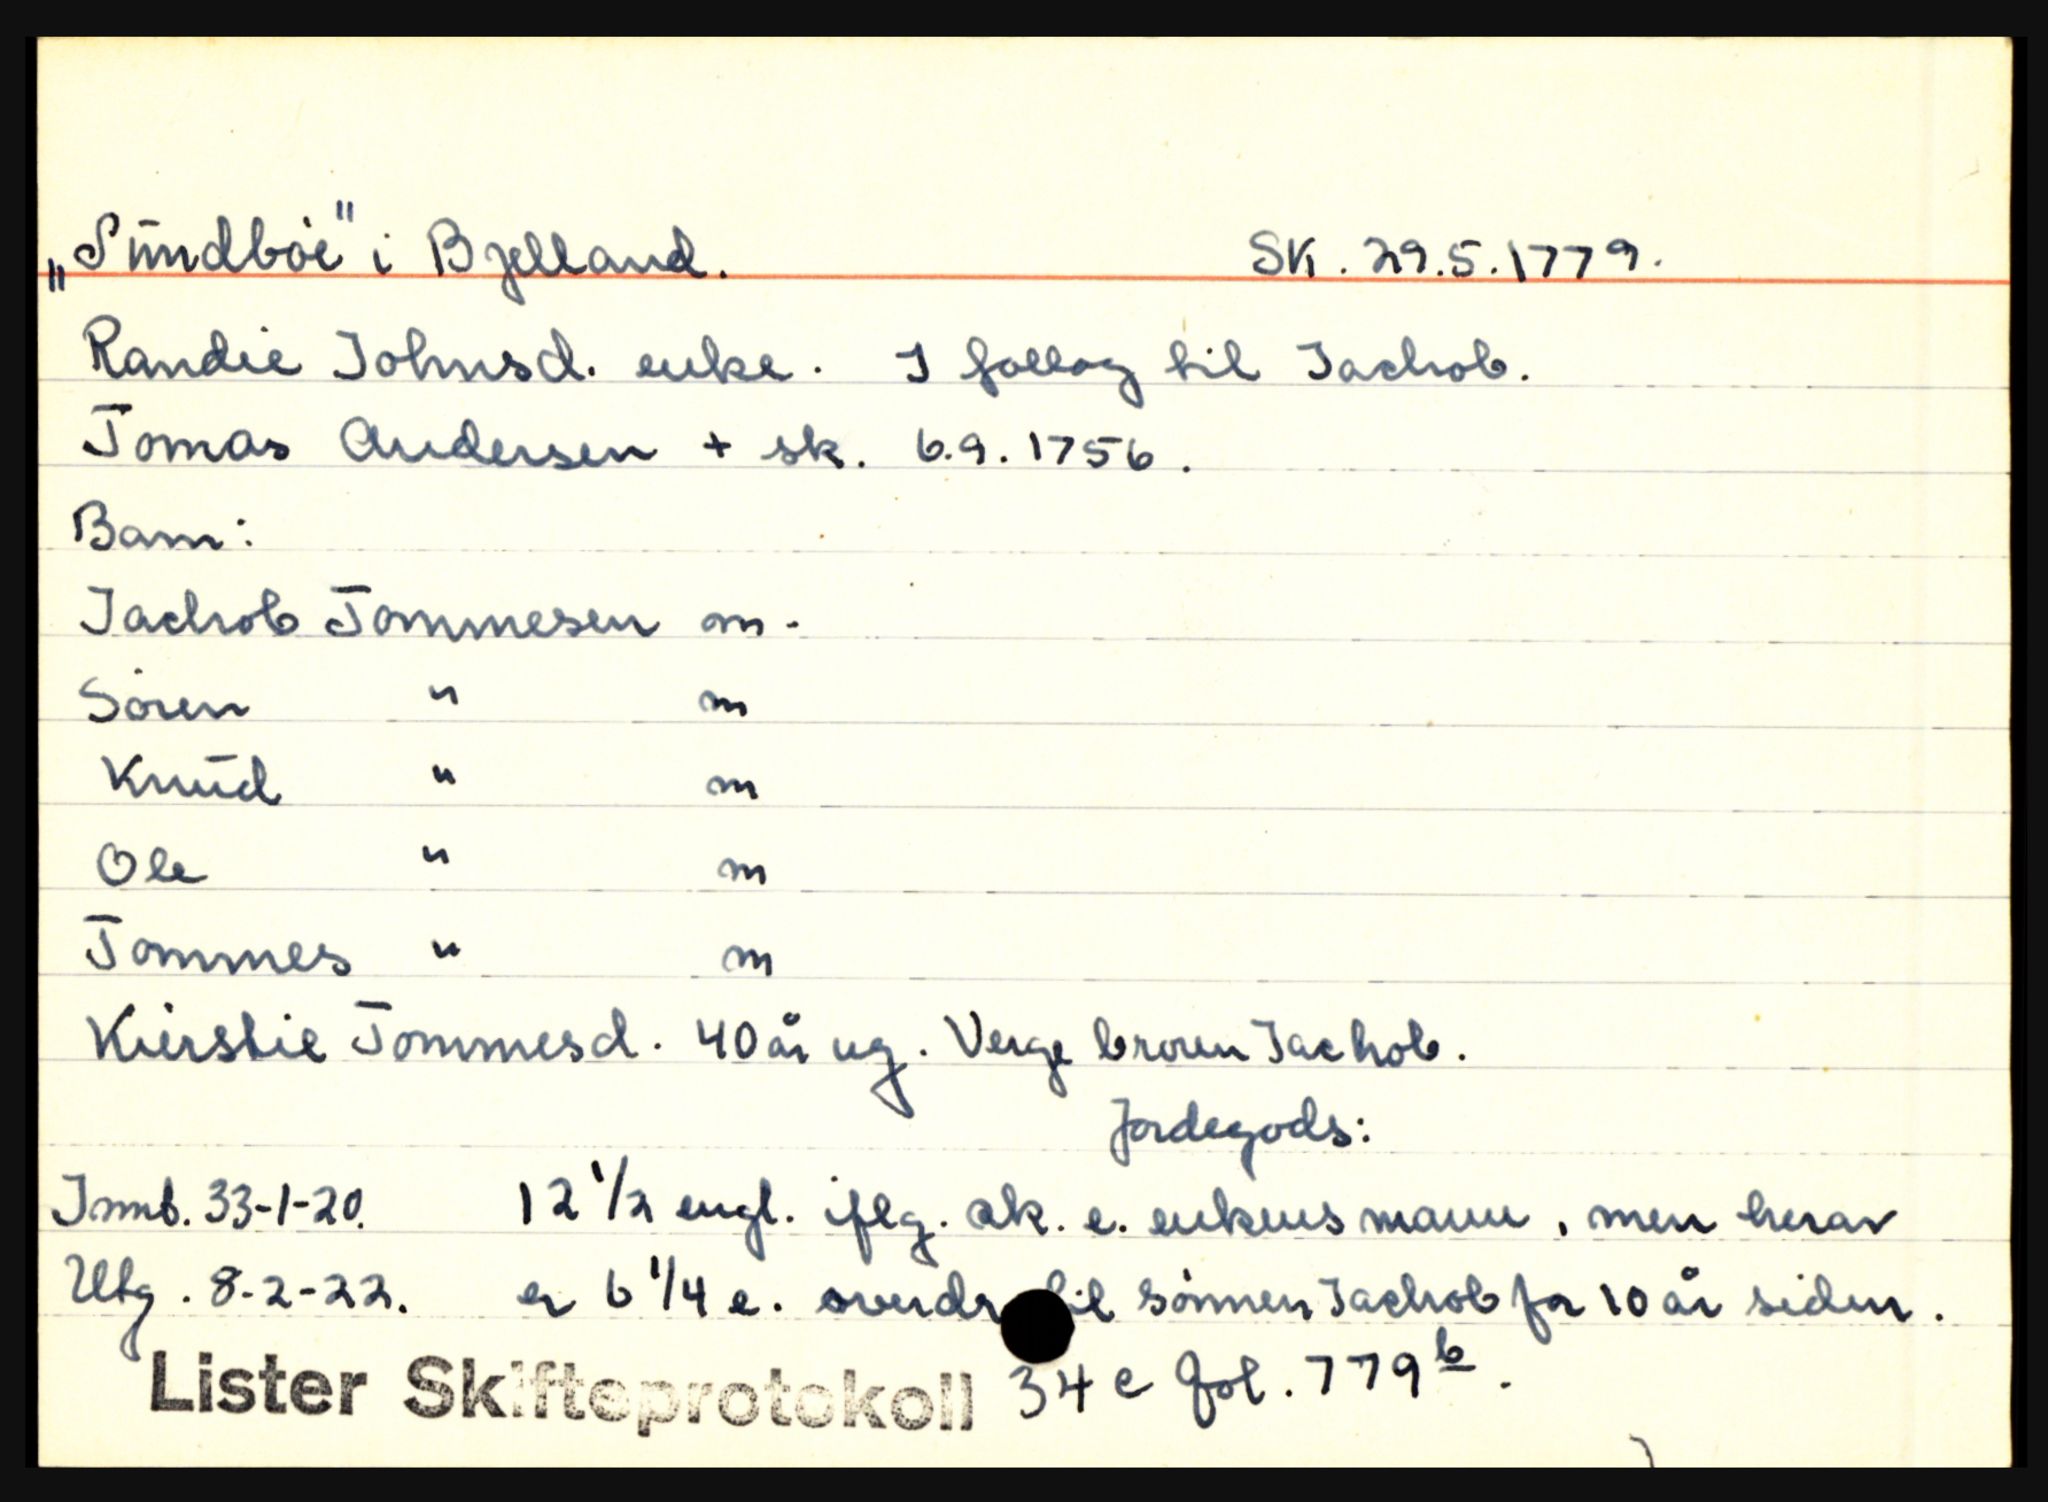 „Sundböe" i Bjelland. SK. 29.5.1779.
Randie Johnsd. enke. I follog til Jachob.
Tomas Andersen + sk. 6.9.1756.
Barn:
Jachob Tommesen m.
Sören " m
Knud " m
Ole " m
Tommes " m
Kierstie Tommesd. 40 år ug. Verge broren Jachob.
Jordegods:
Innb. 33-1-20. 12 1/2 engl. iflg. sk. e. enkens mann, men herav
Utg. 8-2-22. er 6 1/4 e. overdr til sönnen Jachob for 10 år siden.
Lister Skifteprotokoll 34 c fol. 779 b.